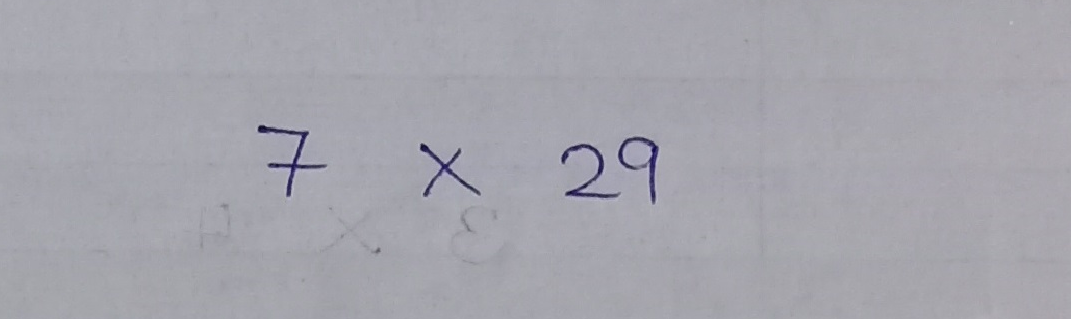 7 × 29